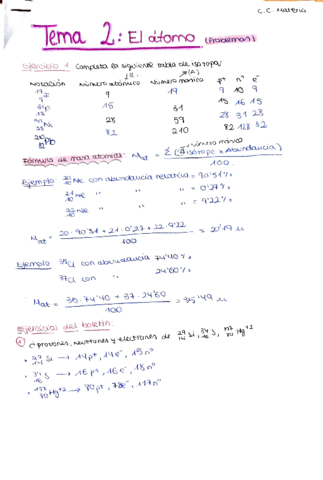 C.C. Materia
Tema 2: El átomo (Problemas)
Ejercicio 1. Completa la siguiente tabla de isótopos:
(Z) (A)
Notación Número atómico Número másico p+ n° e-
19 9 F 9 19 9 10 9
31 15 P 15 31 15 16 15
59 28 Ni 28 59 28 31 28
210 82 Pb 82 210 82 128 82
Fórmula de masa atómica: Mat = Σ (Isótopo x Abundancia) / 100
número másico
Ejemplo 20 10 Ne con abundancia relativa = 90'51%
21 10 Ne " " " = 0'27%
22 10 Ne " " " = 9'22%
Mat = 20·90'51 + 21·0'27 + 22·9'22 / 100 = 20'19 u
Ejemplo: 35Cl con abundancia 74'40%
37Cl con " 24'60%
Mat = 35·74'40 + 37·24'60 / 100 = 35'49 u
Ejercicios del boletín:
¿protones, neutrones y electrones de 29 14 Si, 34 16 S, 197 80 Hg+2
• 29 14 Si → 14p+, 14e-, 15n°
• 34 16 S → 16p+, 16e-, 18n°
• 197 80 Hg+2 → 80p+, 78e-, 117n°